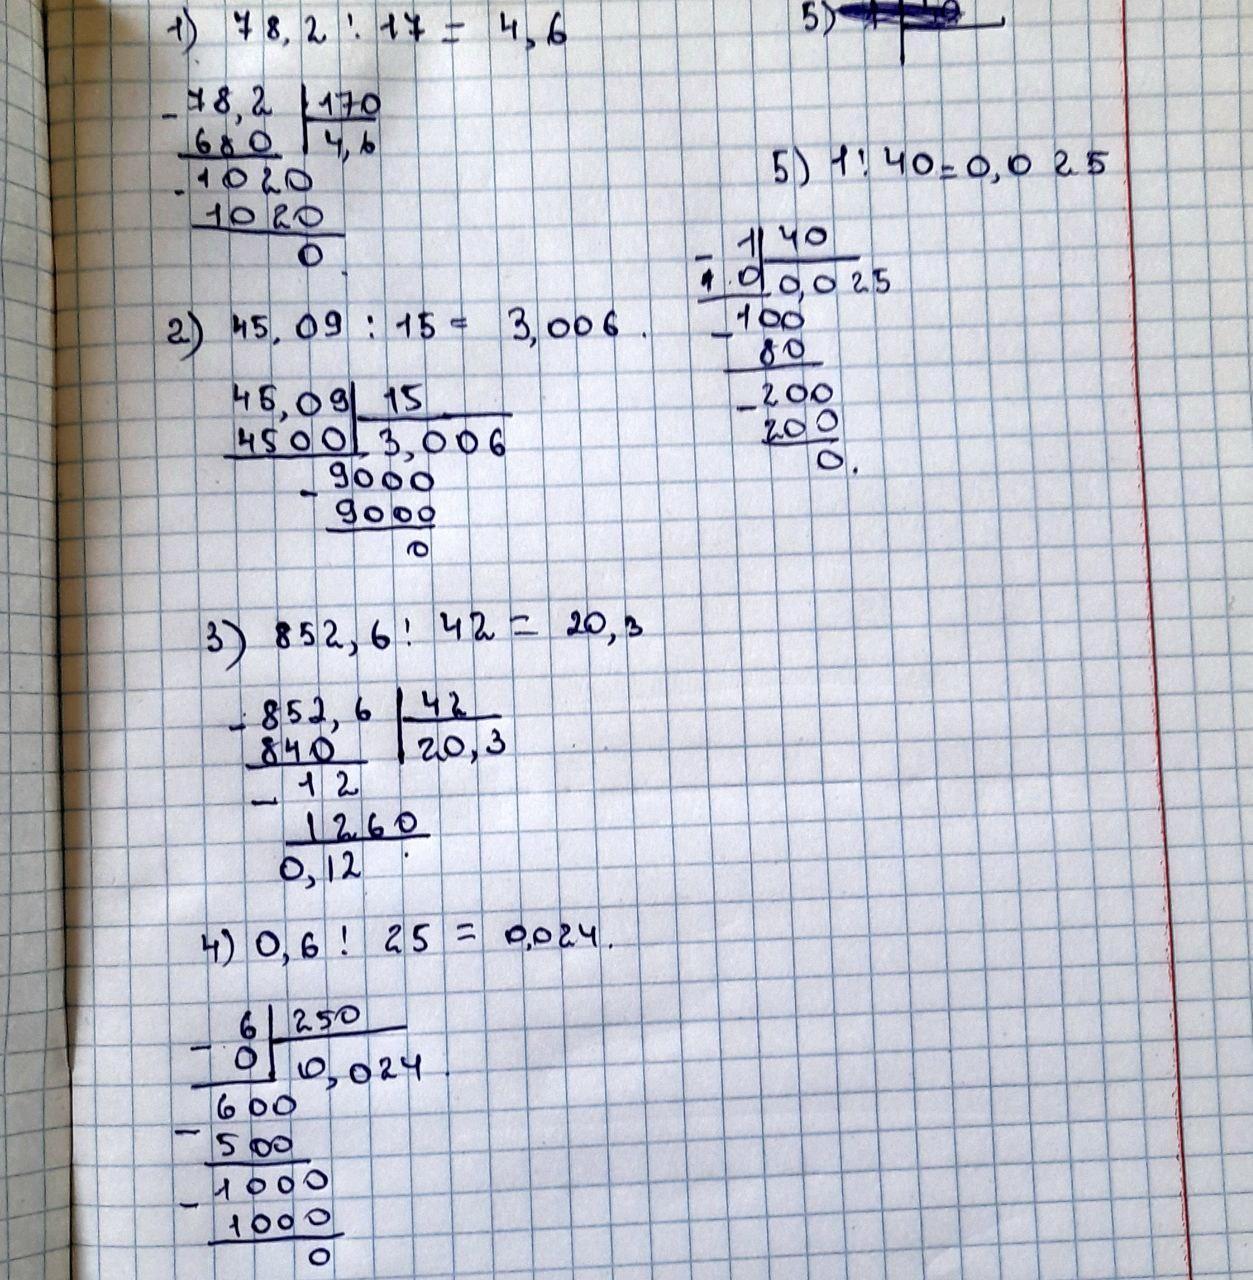 1) 78,2 : 17 = 4,6
- 78,2 | 170
680 | 4,6
- 1020
1020
0
2) 45,09 : 15 = 3,006.
45,09 | 15
4500 | 3,006
- 9000
9000
0
3) 852,6 : 42 = 20,3
- 852,6 | 42
840 | 20,3
- 12
1260
0,12
4) 0,6 : 25 = 0,024.
- 6 | 250
0 | 0,024.
600
- 500
1000
- 1000
0
5)
5) 1 : 40 = 0,025
- 1 | 40
0 | 0,025
- 100
80
- 200
200
0.